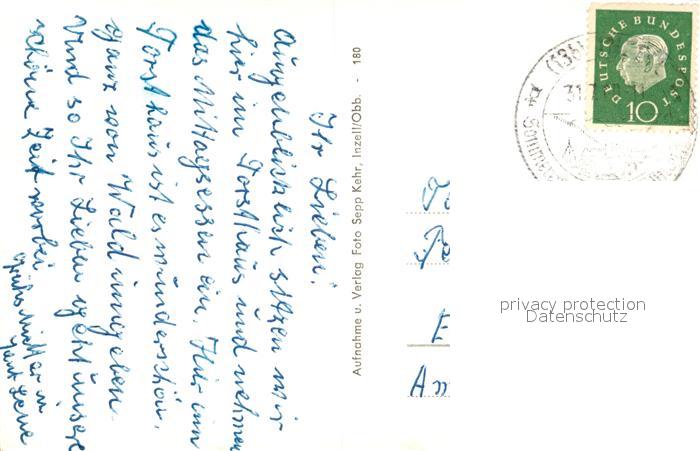 Ihr Lieben!
Augenblicklich sitzen wir
hier im Forsthaus und nehmen
das Mittagessen ein. Hier im
Forsthaus ist es wunderschön,
ganz von Wald umgeben.
Und so Ihr Lieben geht unsere
schöne Zeit vorbei
Grüße Mutter u
Aufnahme u. Verlag Foto Sepp Kehr, Inzell/Obb. - 180
DEUTSCHE BUNDESPOST
10
(13b)
31.
privacy protection
Datenschutz
E
Am